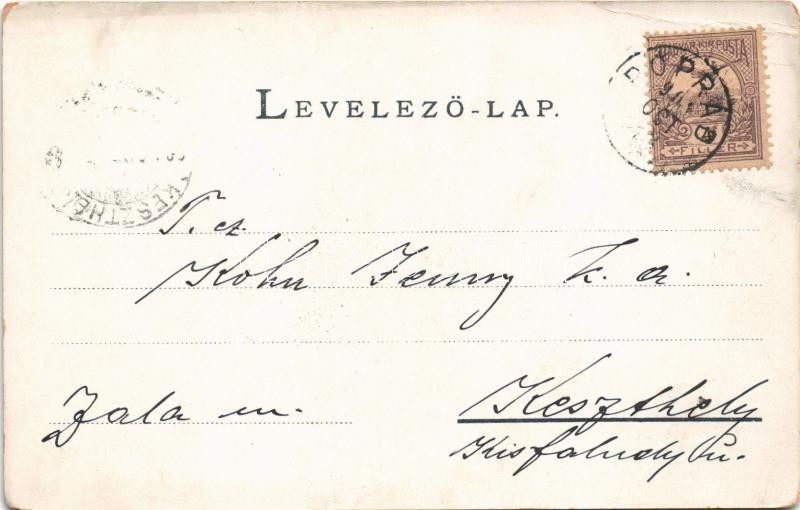 LEVELEZŐ-LAP.
MAGYAR KIR. POSTA
2 FILLÉR
POPRÁD
KESZTHELY
T. cz.
Kohn Jenny k. a.
Zala m.
Keszthely
Kisfaludy u.